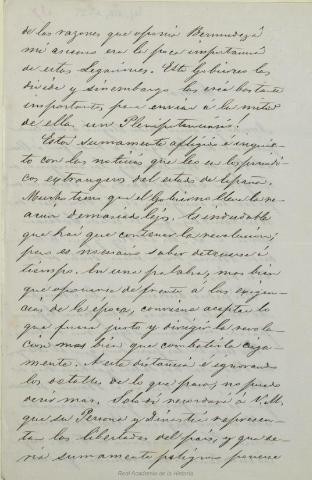 de las razones que oponia Bermudez á
mi ascenso era la poca importancia
de estas Legaciones. Este Gobierno las
divide y sin embargo las cree bastante
importantes para enviar á la mitad
de ellas un Plenipotenciario!
Estoy sumamente afligido é inquie-
to con las noticias que leo en los periódi-
cos extrangeros del estado de España.
Mucho temo que el Gobierno lleve la re-
accion demasiado lejos. Es indudable
que hai que contener la revolucion;
pero es necesario saber detenerse á
tiempo. En una palabra, mas bien
que oponerse de frente á las exigen-
cias de la época, convina aceptar lo
que fuera justo y dirigir la revolu-
cion mas bien que combatirla ciega-
mente. A esta distancia é ignorando
los detalles de lo que pasa, no puedo
decir mas. Solo si recordaré á V.M.
que su Persona y Dinastía represen-
tan las libertades del país, y que se-
ria sumamente peligroso ponerse
Real Academia de la Historia